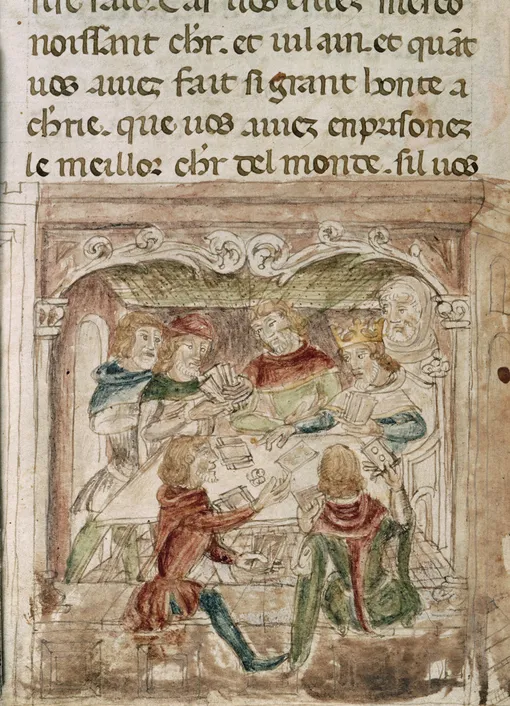 Car uos estiez mesco
noissant chr̃. et uilain. et quãt
uos auiez fait si grant honte a
chr̃ie. que uos auiez enprisonez
le meillor chr̃ del monde. sil uos